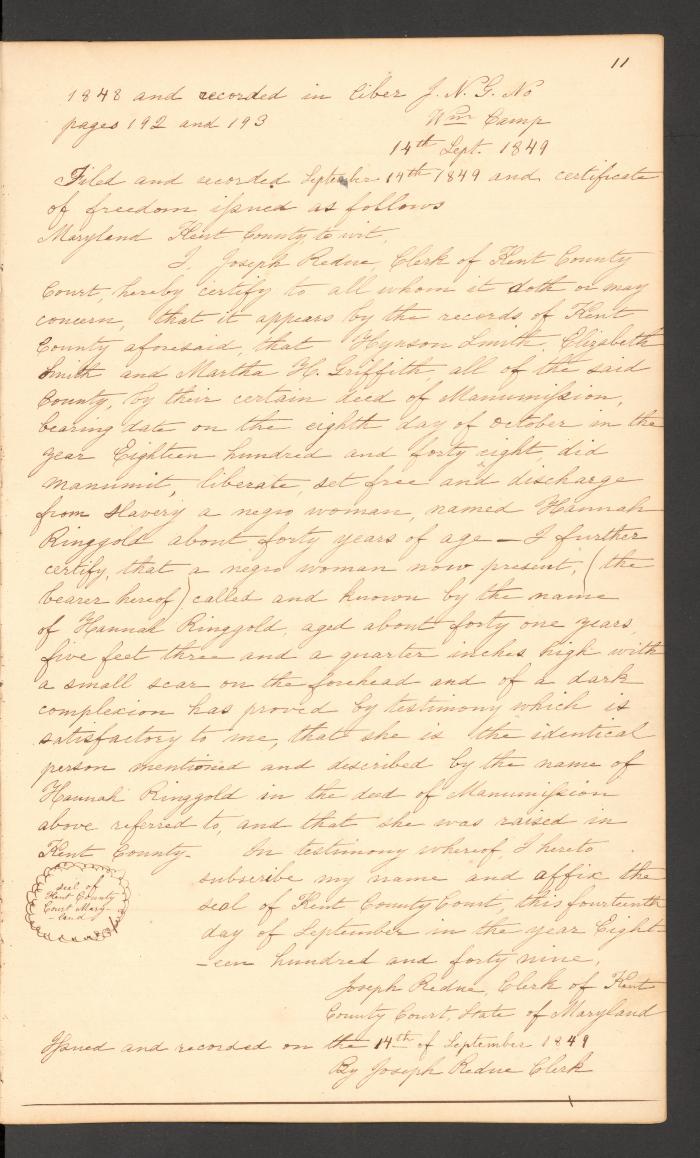 11
1848 and recorded in liber J. N. G. No
pages 192 and 193 Wm Camp
14th Sept. 1849
Filed and recorded September 14th 1849 and certificate
of freedom issued as follows
Maryland Kent County, to wit,
I, Joseph Redue, Clerk of Kent County
Court, hereby certify to all whom it doth or may
concern, that it appears by the records of Kent
County aforesaid, that Hynson Smith, Elizabeth
Smith and Martha H. Griffith, all of the said
County, by their certain deed of Manumission,
bearing date on the eighth day of October in the
year Eighteen hundred and forty eight, did
manumit, liberate, set free and discharge
from slavery a negro woman, named Hannah
Ringgold about forty years of age — I further
certify, that a negro woman now present, (the
bearer hereof) called and known by the name
of Hannah Ringgold, aged about forty one years,
five feet three and a quarter inches high with
a small scar on the forehead and of a dark
complexion has proved by testimony which is
satisfactory to me, that she is the identical
person mentioned and described by the name of
Hannah Ringgold in the deed of Manumission
above referred to, and that she was raised in
Kent County- In testimony whereof I hereto
subscribe my name and affix the
seal of Kent County Court, this fourteenth
day of September in the year Eight-
-een hundred and forty nine,
seal of
Kent County
Court Mary-
-land
Joseph Redue, Clerk of Kent
County Court, State of Maryland
Issued and recorded on the 14th of September 1849
By Joseph Redue Clerk